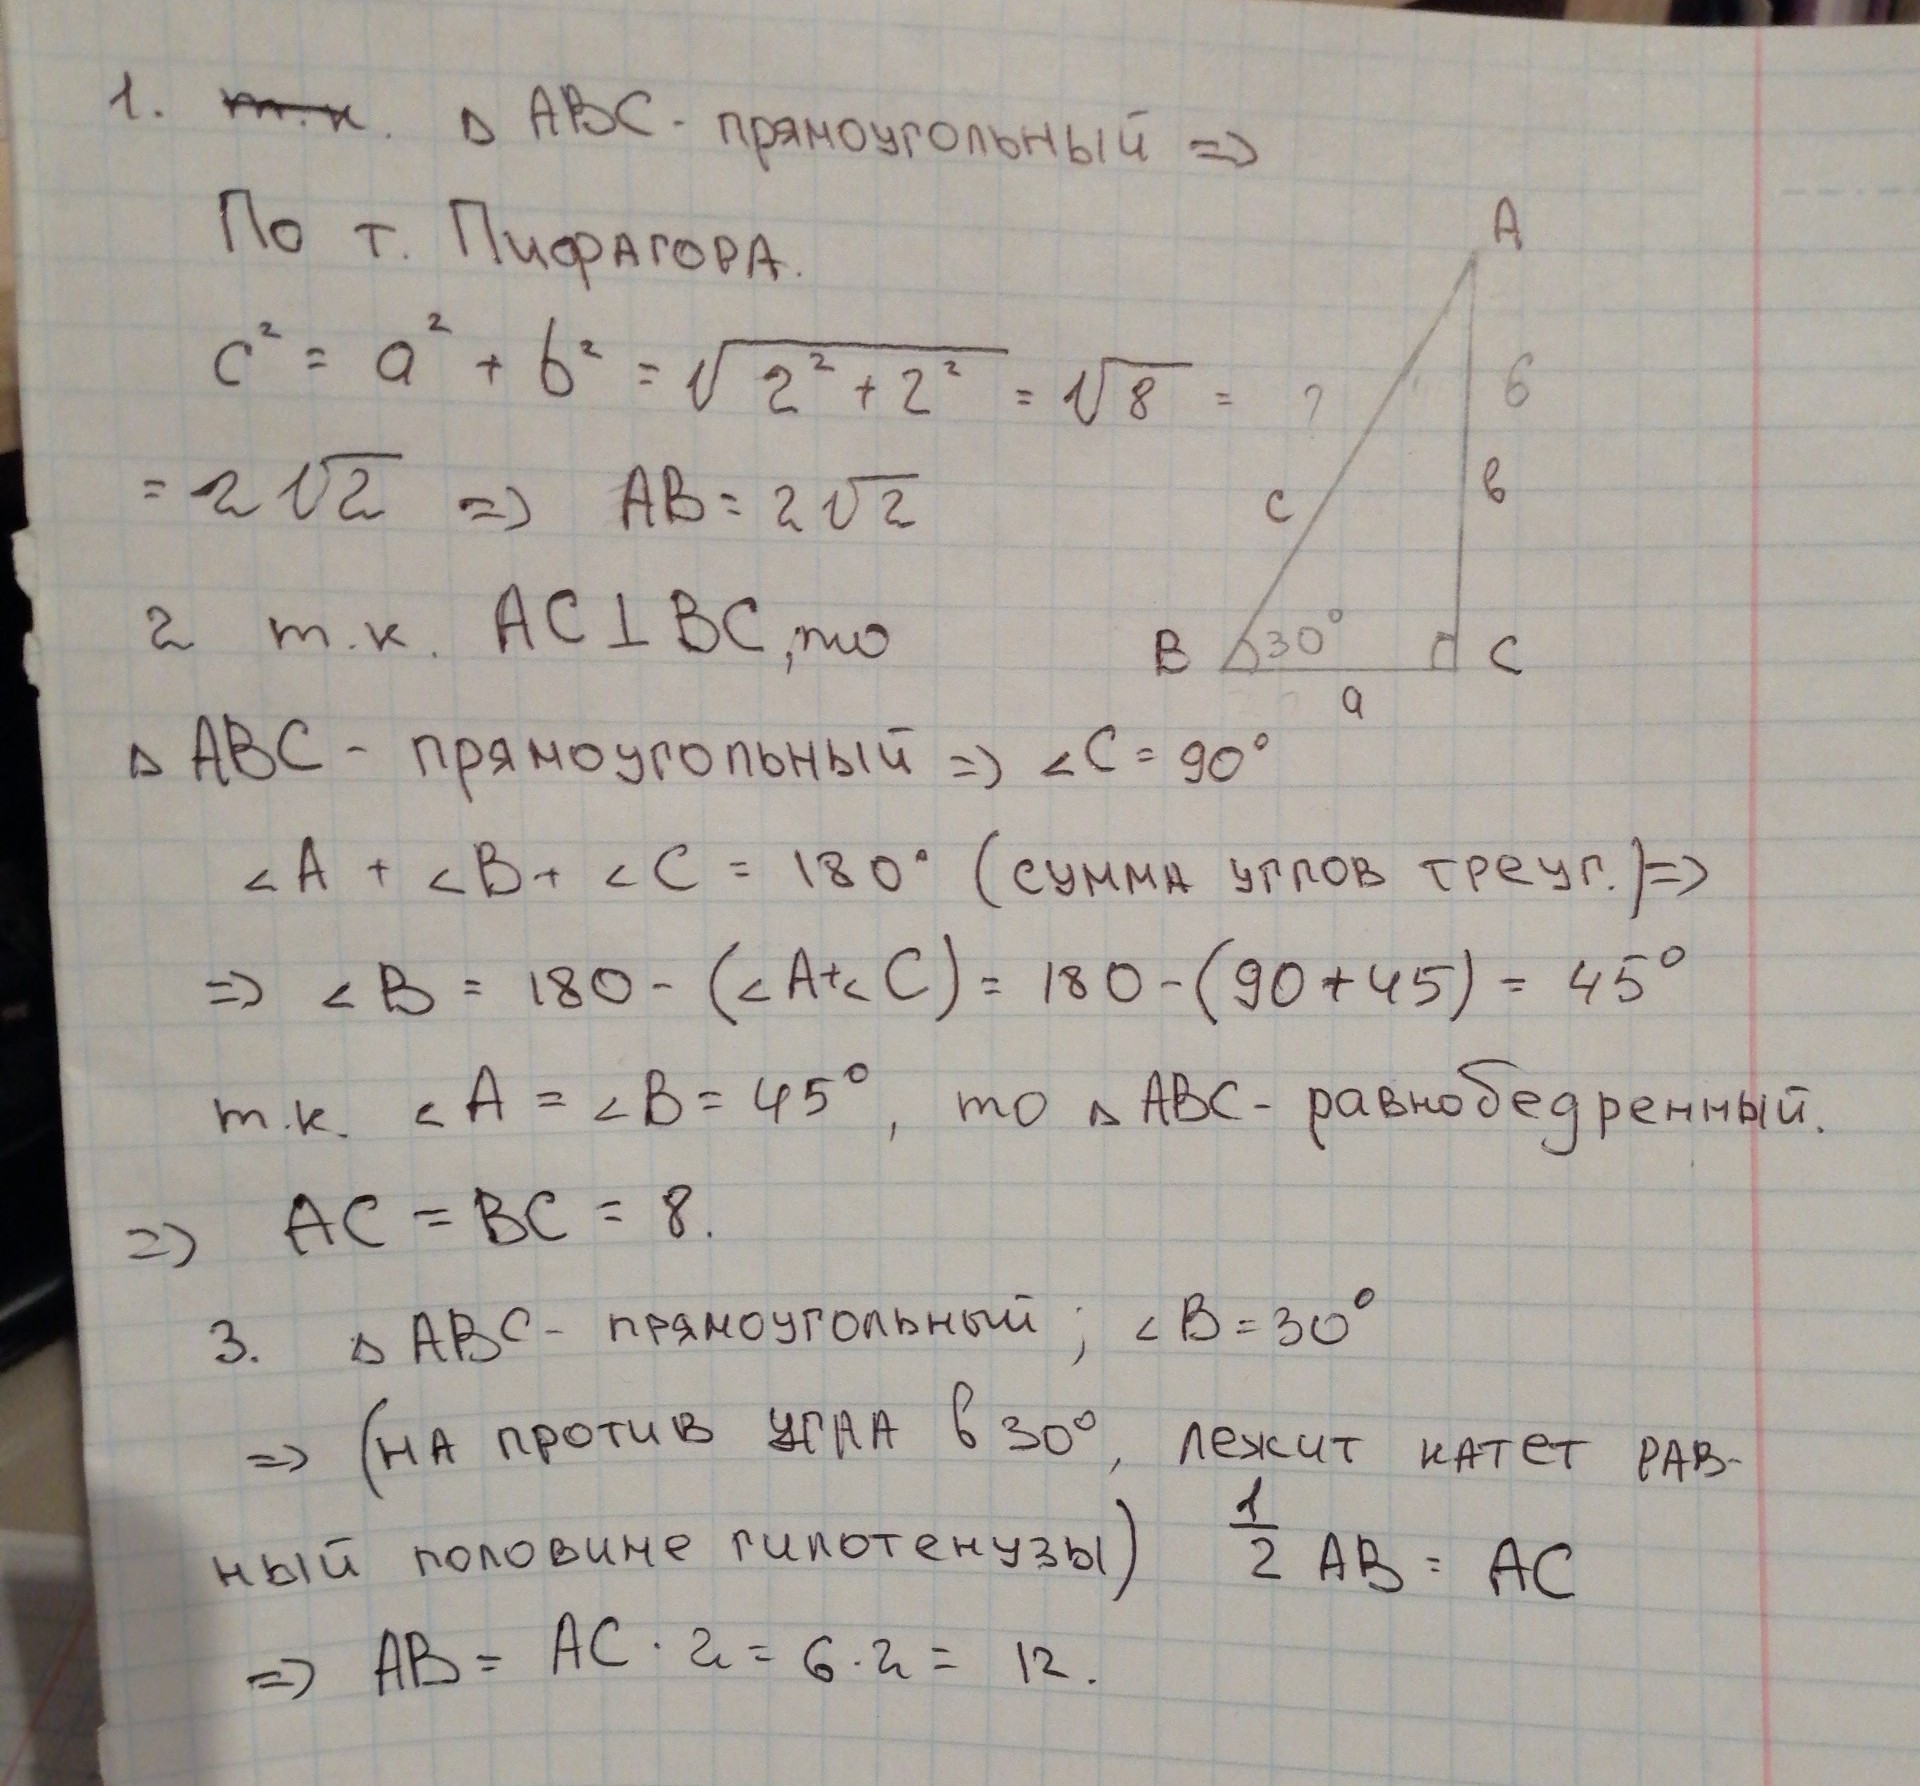 1. т.к. △ ABC - прямоугольный =>
По т. Пифагора.
c² = a² + b² = √(2² + 2²) = √8 = ?
= 2√2 => AB = 2√2
A
6
в
c
B 30° C
a
2 т.к. AC ⊥ BC, то
△ ABC - прямоугольный => ∠C = 90°
∠A + ∠B + ∠C = 180° (сумма углов треуг.) =>
=> ∠B = 180 - (∠A+∠C) = 180 - (90 + 45) = 45°
т.к. ∠A = ∠B = 45°, то △ ABC - равнобедренный.
=> AC = BC = 8.
3. △ ABC - прямоугольный; ∠B = 30°
=> (на против угла в 30°, лежит катет рав-
ный половине гипотенузы) 1/2 AB = AC
=> AB = AC · 2 = 6 · 2 = 12.